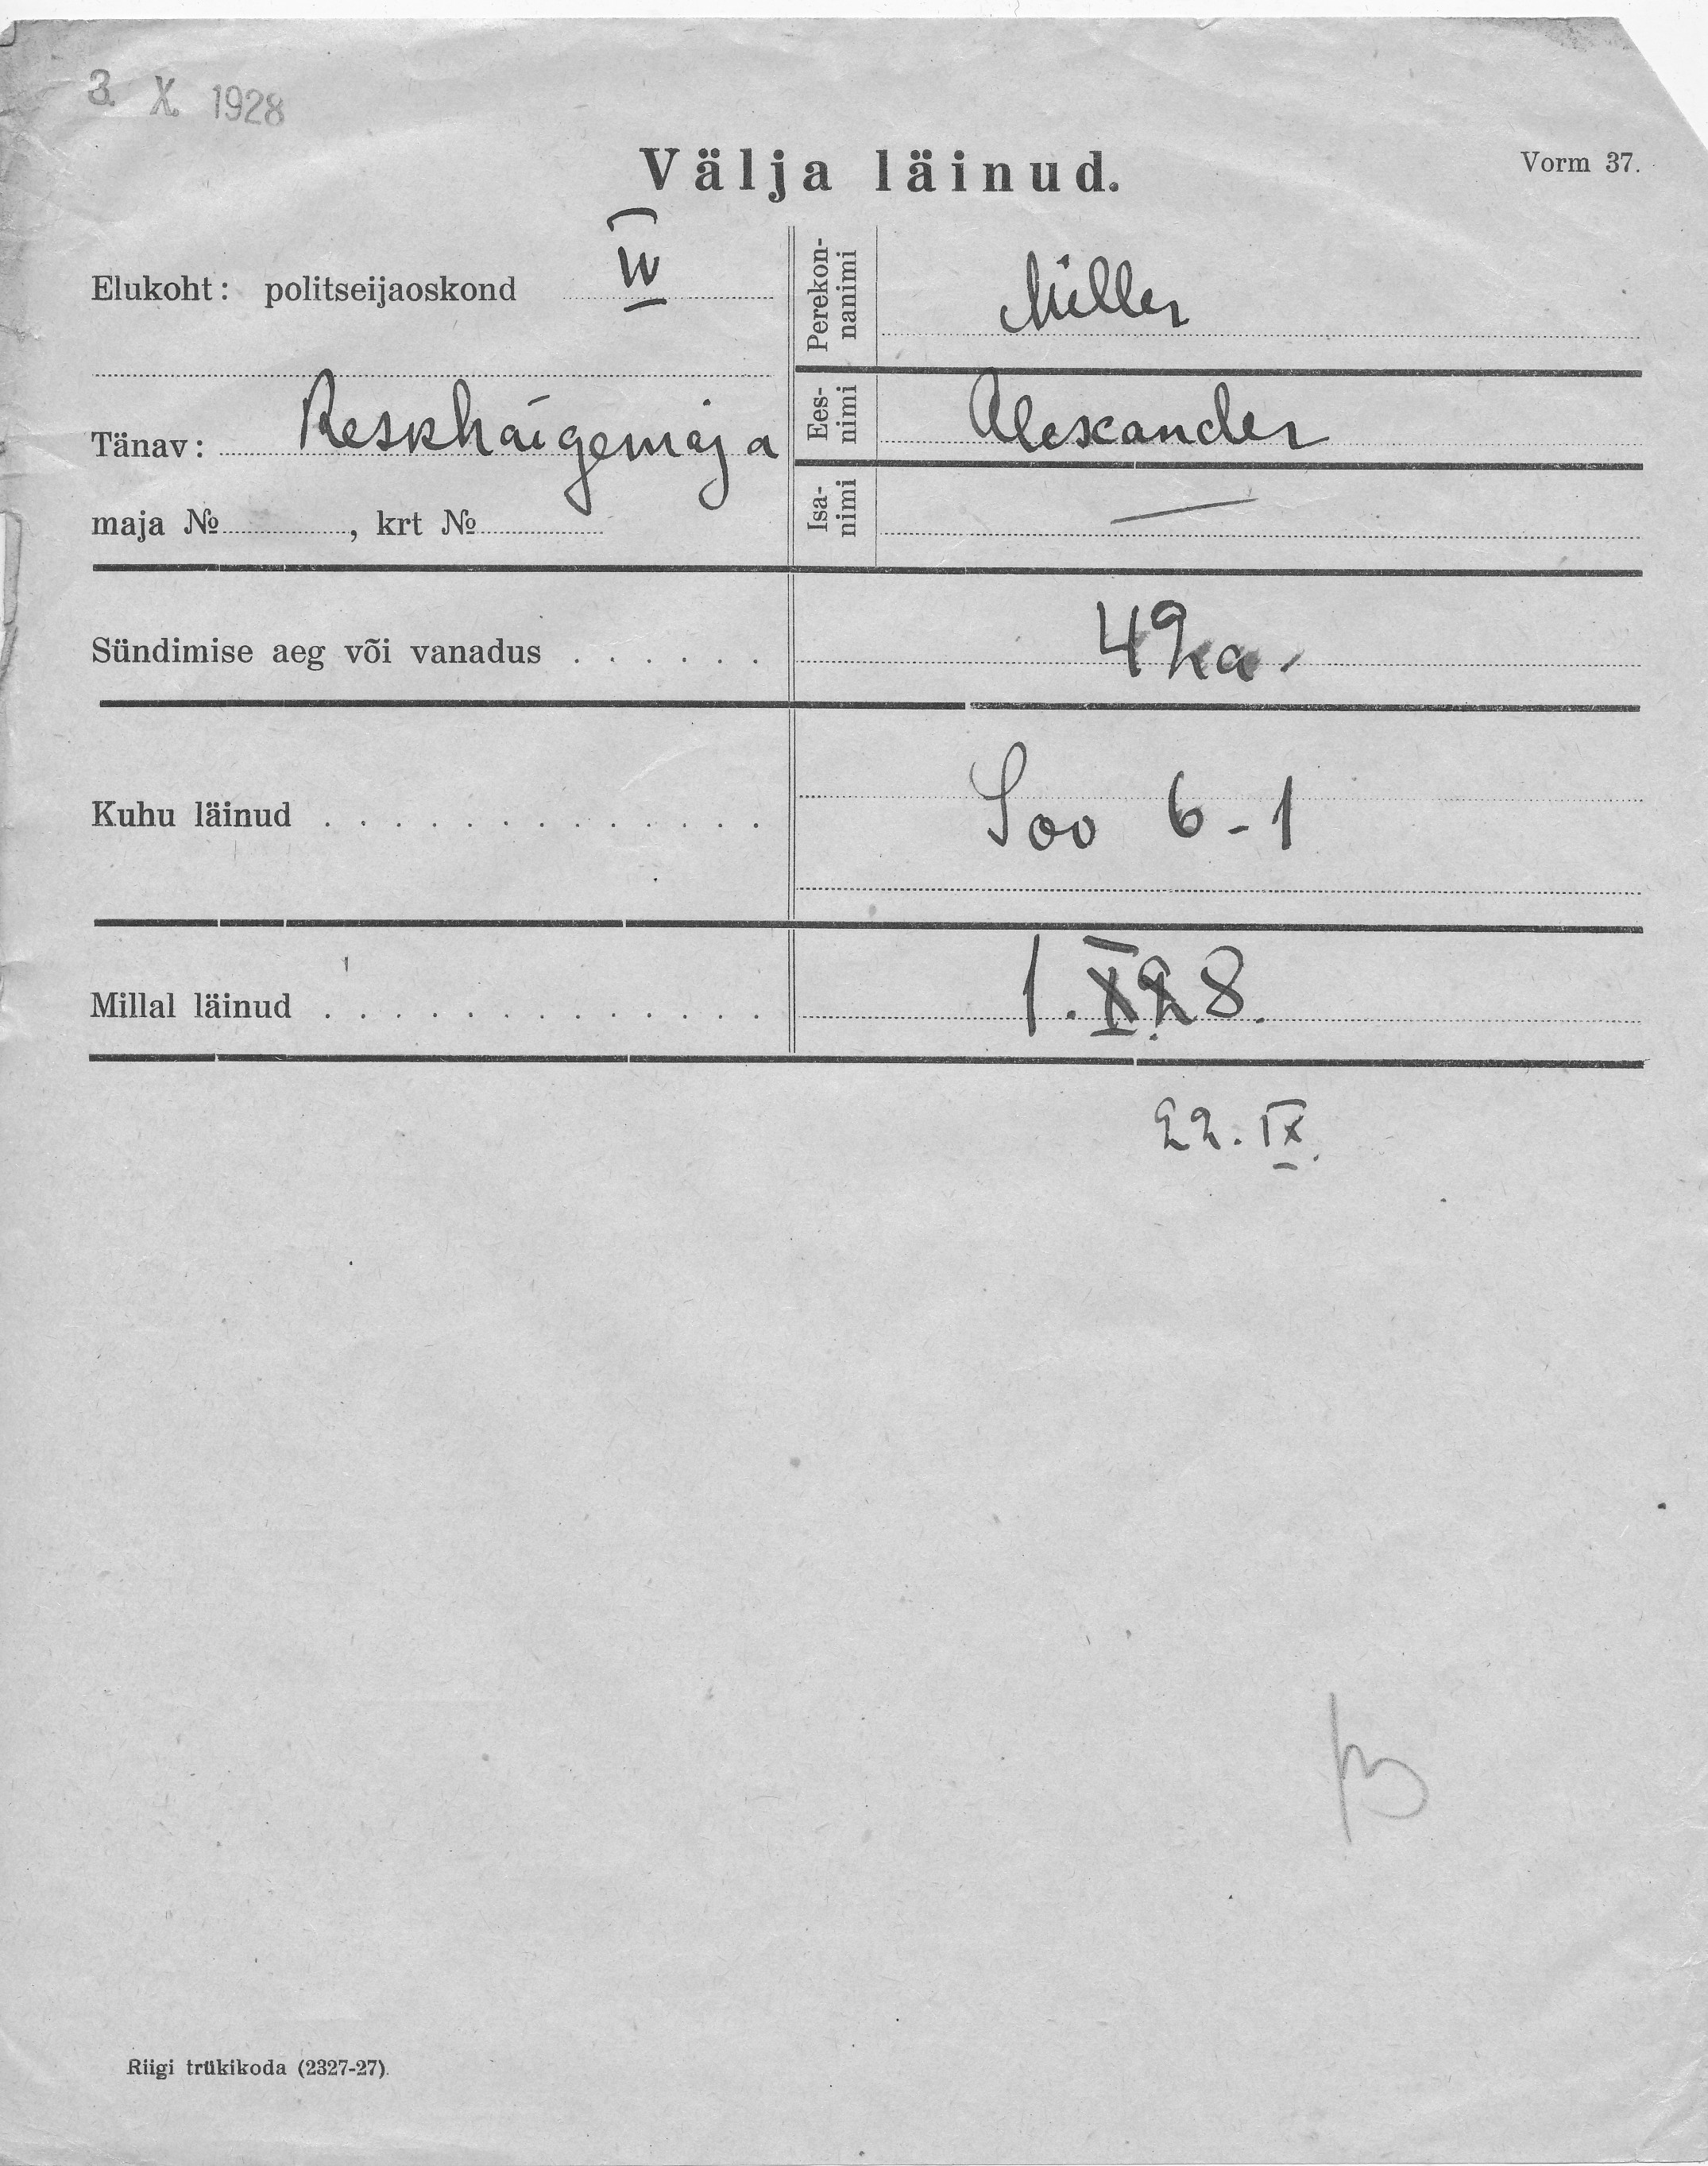 3. X. 1928
Välja läinud.
Vorm 37.
Elukoht: politseijaoskond IV
Perekonnanimi Miller
Tänav: Keskhaigemaja
Eesnimi Alexander
maja № , krt №
Isanimi —
Sündimise aeg või vanadus 49 a.
Kuhu läinud Soo 6-1
Millal läinud 1. X 28.
22. IX.
Riigi trükikoda (2327-27).